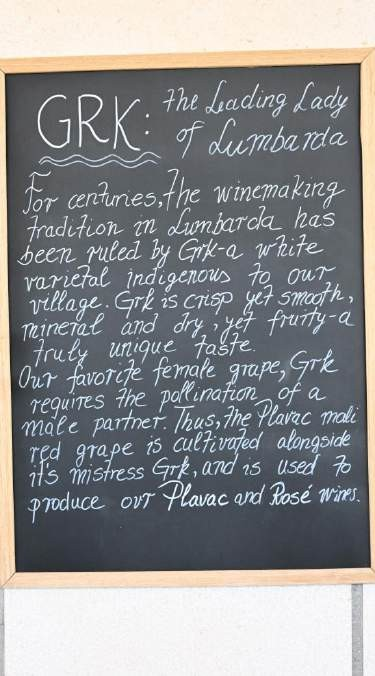 GRK: the Leading Lady
of Lumbarda
For centuries, the winemaking
tradition in Lumbarda has
been ruled by Grk-a white
varietal indigenous to our
village. Grk is crisp yet smooth,
mineral and dry, yet fruity-a
truly unique taste.
Our favorite female grape, Grk
requires the pollination of a
male partner. Thus, the Plavac mali
red grape is cultivated alongside
it's mistress Grk, and is used to
produce our Plavac and Rosé wines.